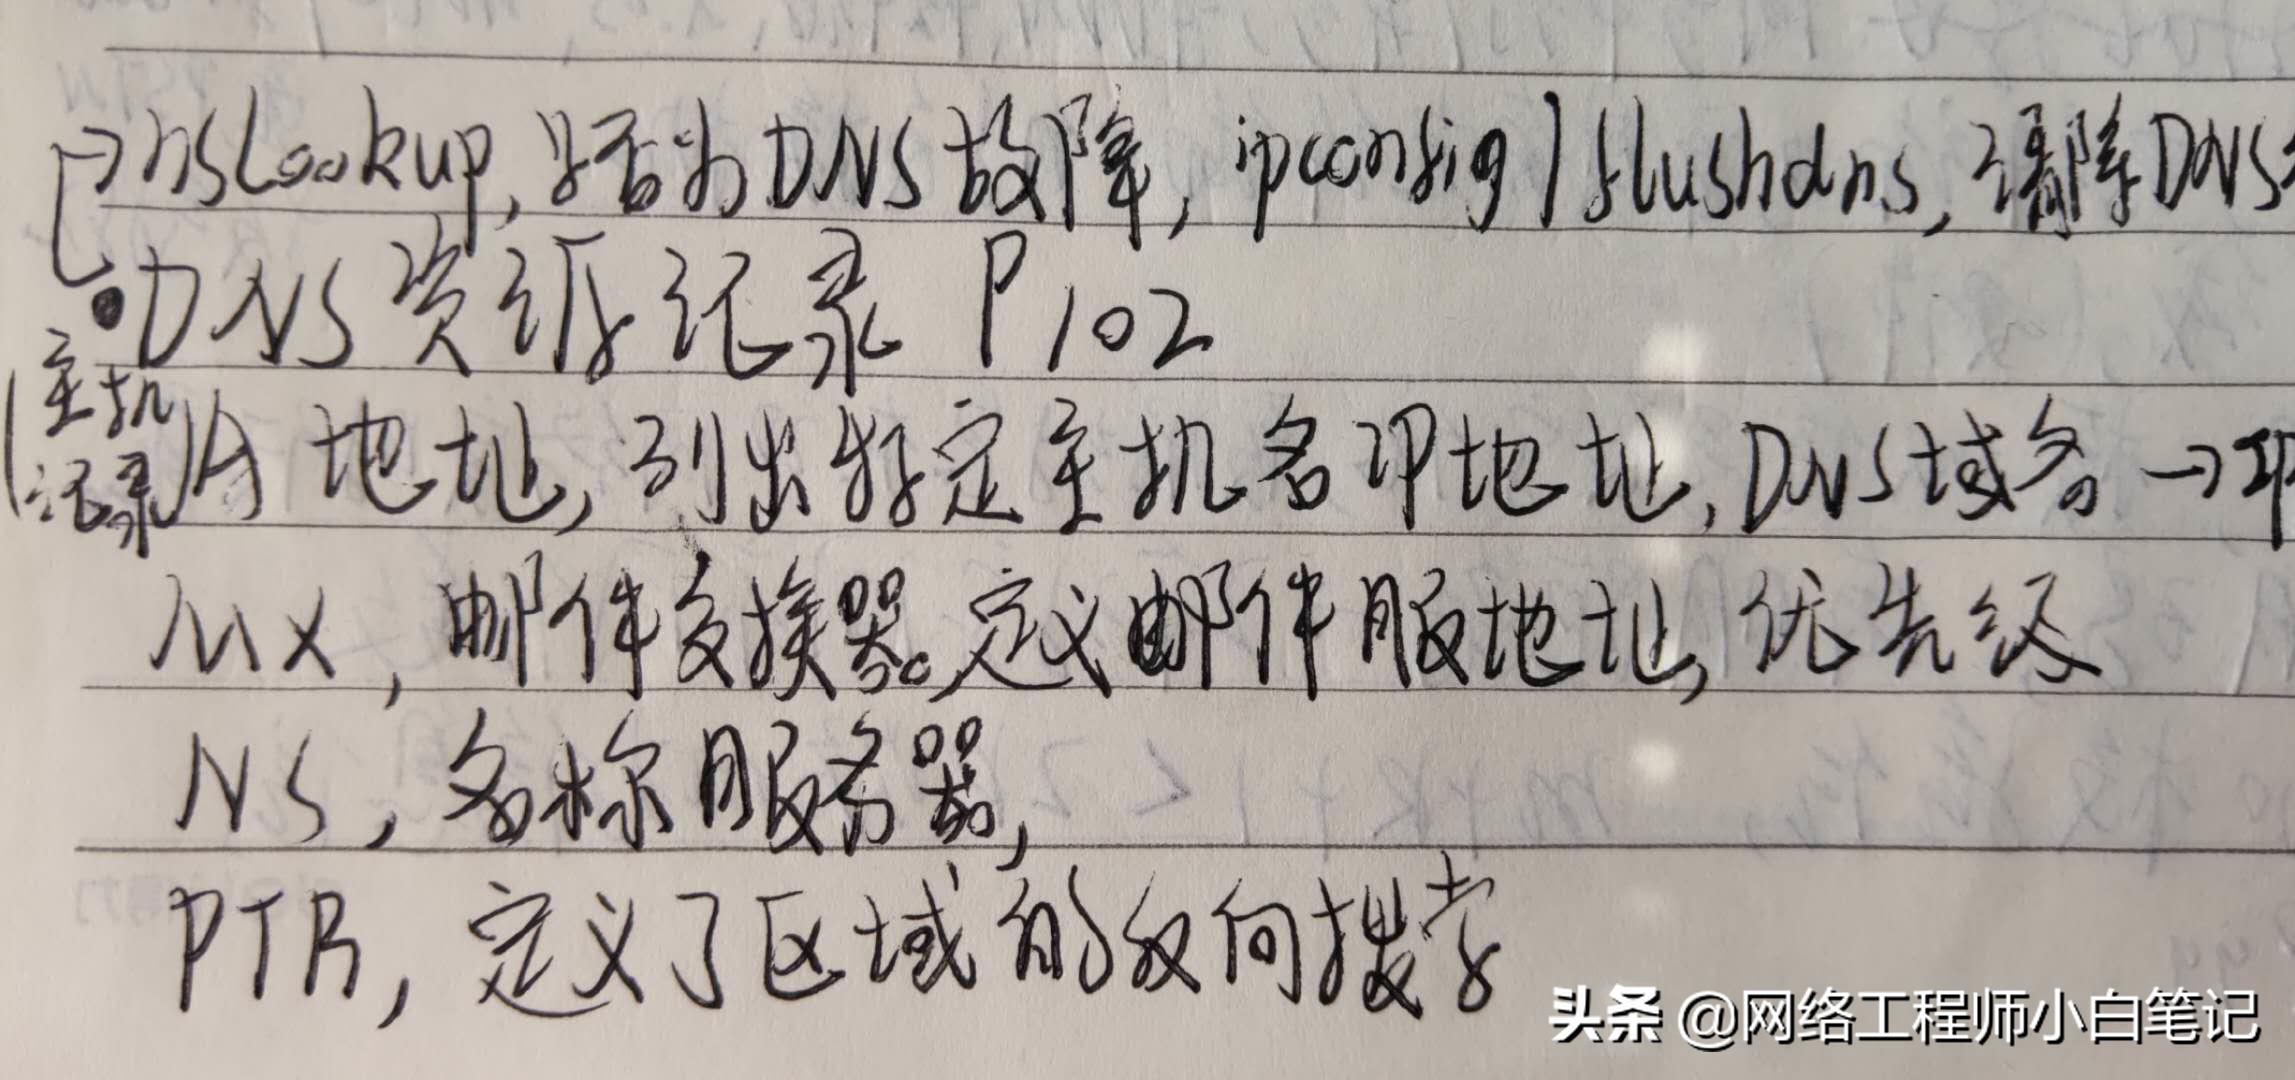 →nslookup,是否为DNS故障,ipconfig/flushdns,清除DNS
•DNS资源记录 P102
(主机记录)A 地址,列出特定主机名IP地址,DNS域名→IP
MX,邮件交换器。定义邮件服地址,优先级
NS,名称服务器,
PTR,定义了区域的反向搜索
头条 @网络工程师小白笔记